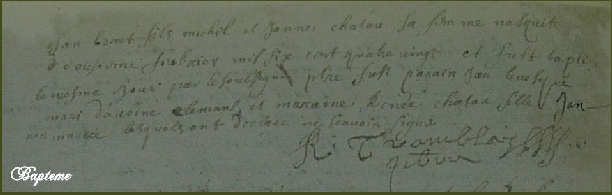 Jan benet fils michel et Janne chatau sa femme nasquit
douziesme febvrier mil six cent quatre vingt et fust bapt
le mesme jour par le soubsigne pbre fust parain Jan
mari d'aubine et maraine Renée chatau fille non
mariee lesquels ont declare ne scavoir signe
R:
Bapteme